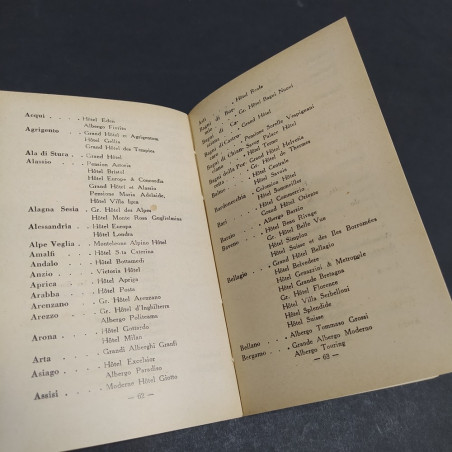 Acqui . . . . Hôtel Eden
Albergo Fiorito
Agrigento . . . Grand Hôtel et Agrigentum
Hôtel Gellia
Grand Hôtel des Temples
Ala di Stura . . . Grand Hôtel
Alassio . . . . Pension Aurora
Hôtel Bristol
Hôtel Europe & Concordia
Grand Hôtel et Alassio
Pensione Maria Adelaide,
Hôtel Villa Igea
Alagna Sesia . . Gr. Hôtel des Alpes
Hôtel Monte Rosa Guglielmina
Alessandria . . . Hôtel Europa
Hôtel Londra
Alpe Veglia . . . Monteleone Alpino Hôtel
Amalfi . . . . Hôtel S-ta Caterina
Andalo . . . . Hôtel Bottamedi
Anzio . . . . Victoria Hôtel
Aprica . . . . Hôtel Aprica
Arabba . . . . Hôtel Posta
Arenzano . . . Gr. Hôtel Arenzano
Arezzo . . . . Gr. Hôtel d'Inghilterra
Albergo Politeama
Arona . . . . Hôtel Gottardo
Hôtel Milan
Arta . . . . Grandi Alberghi Grassi
Asiago . . . . Hôtel Excelsior
Albergo Paradiso
Assisi . . . . Moderne Hôtel Giotto
— 62 —
Asti . . . . Hôtel Reale
Gr. Hôtel Bagni Nuovi
Grand Hôtel
Pensione Sorelle
Hôtel Terme
Grand Hôtel Helvetia
Gr. Hôtel de Thermes
Hôtel Centrale
Hôtel Savoia
Bardonecchia . . Colomion Hôtel
Hôtel Sommeiller
Bari . . . . Hôtel Commercio
Grand Hôtel Oriente
Albergo Baxio
Baveno . . . . Hôtel Beau Rivage
Gr. Hôtel Belle Vue
Hôtel Simplon
Hôtel Suisse et des Iles Borromées
Bellagio . . . . Grand Hôtel Bellagio
Hôtel Belvedere
Hôtel Genazzini & Metropole
Hôtel Grande Bretagna
Gr. Hôtel Florence
Hôtel Villa Serbelloni
Hôtel Splendide
Hôtel Suisse
Bellano . . . . Albergo Tommaso Grossi
Bergamo . . . . Grande Albergo Moderno
Albergo Touring
— 63 —